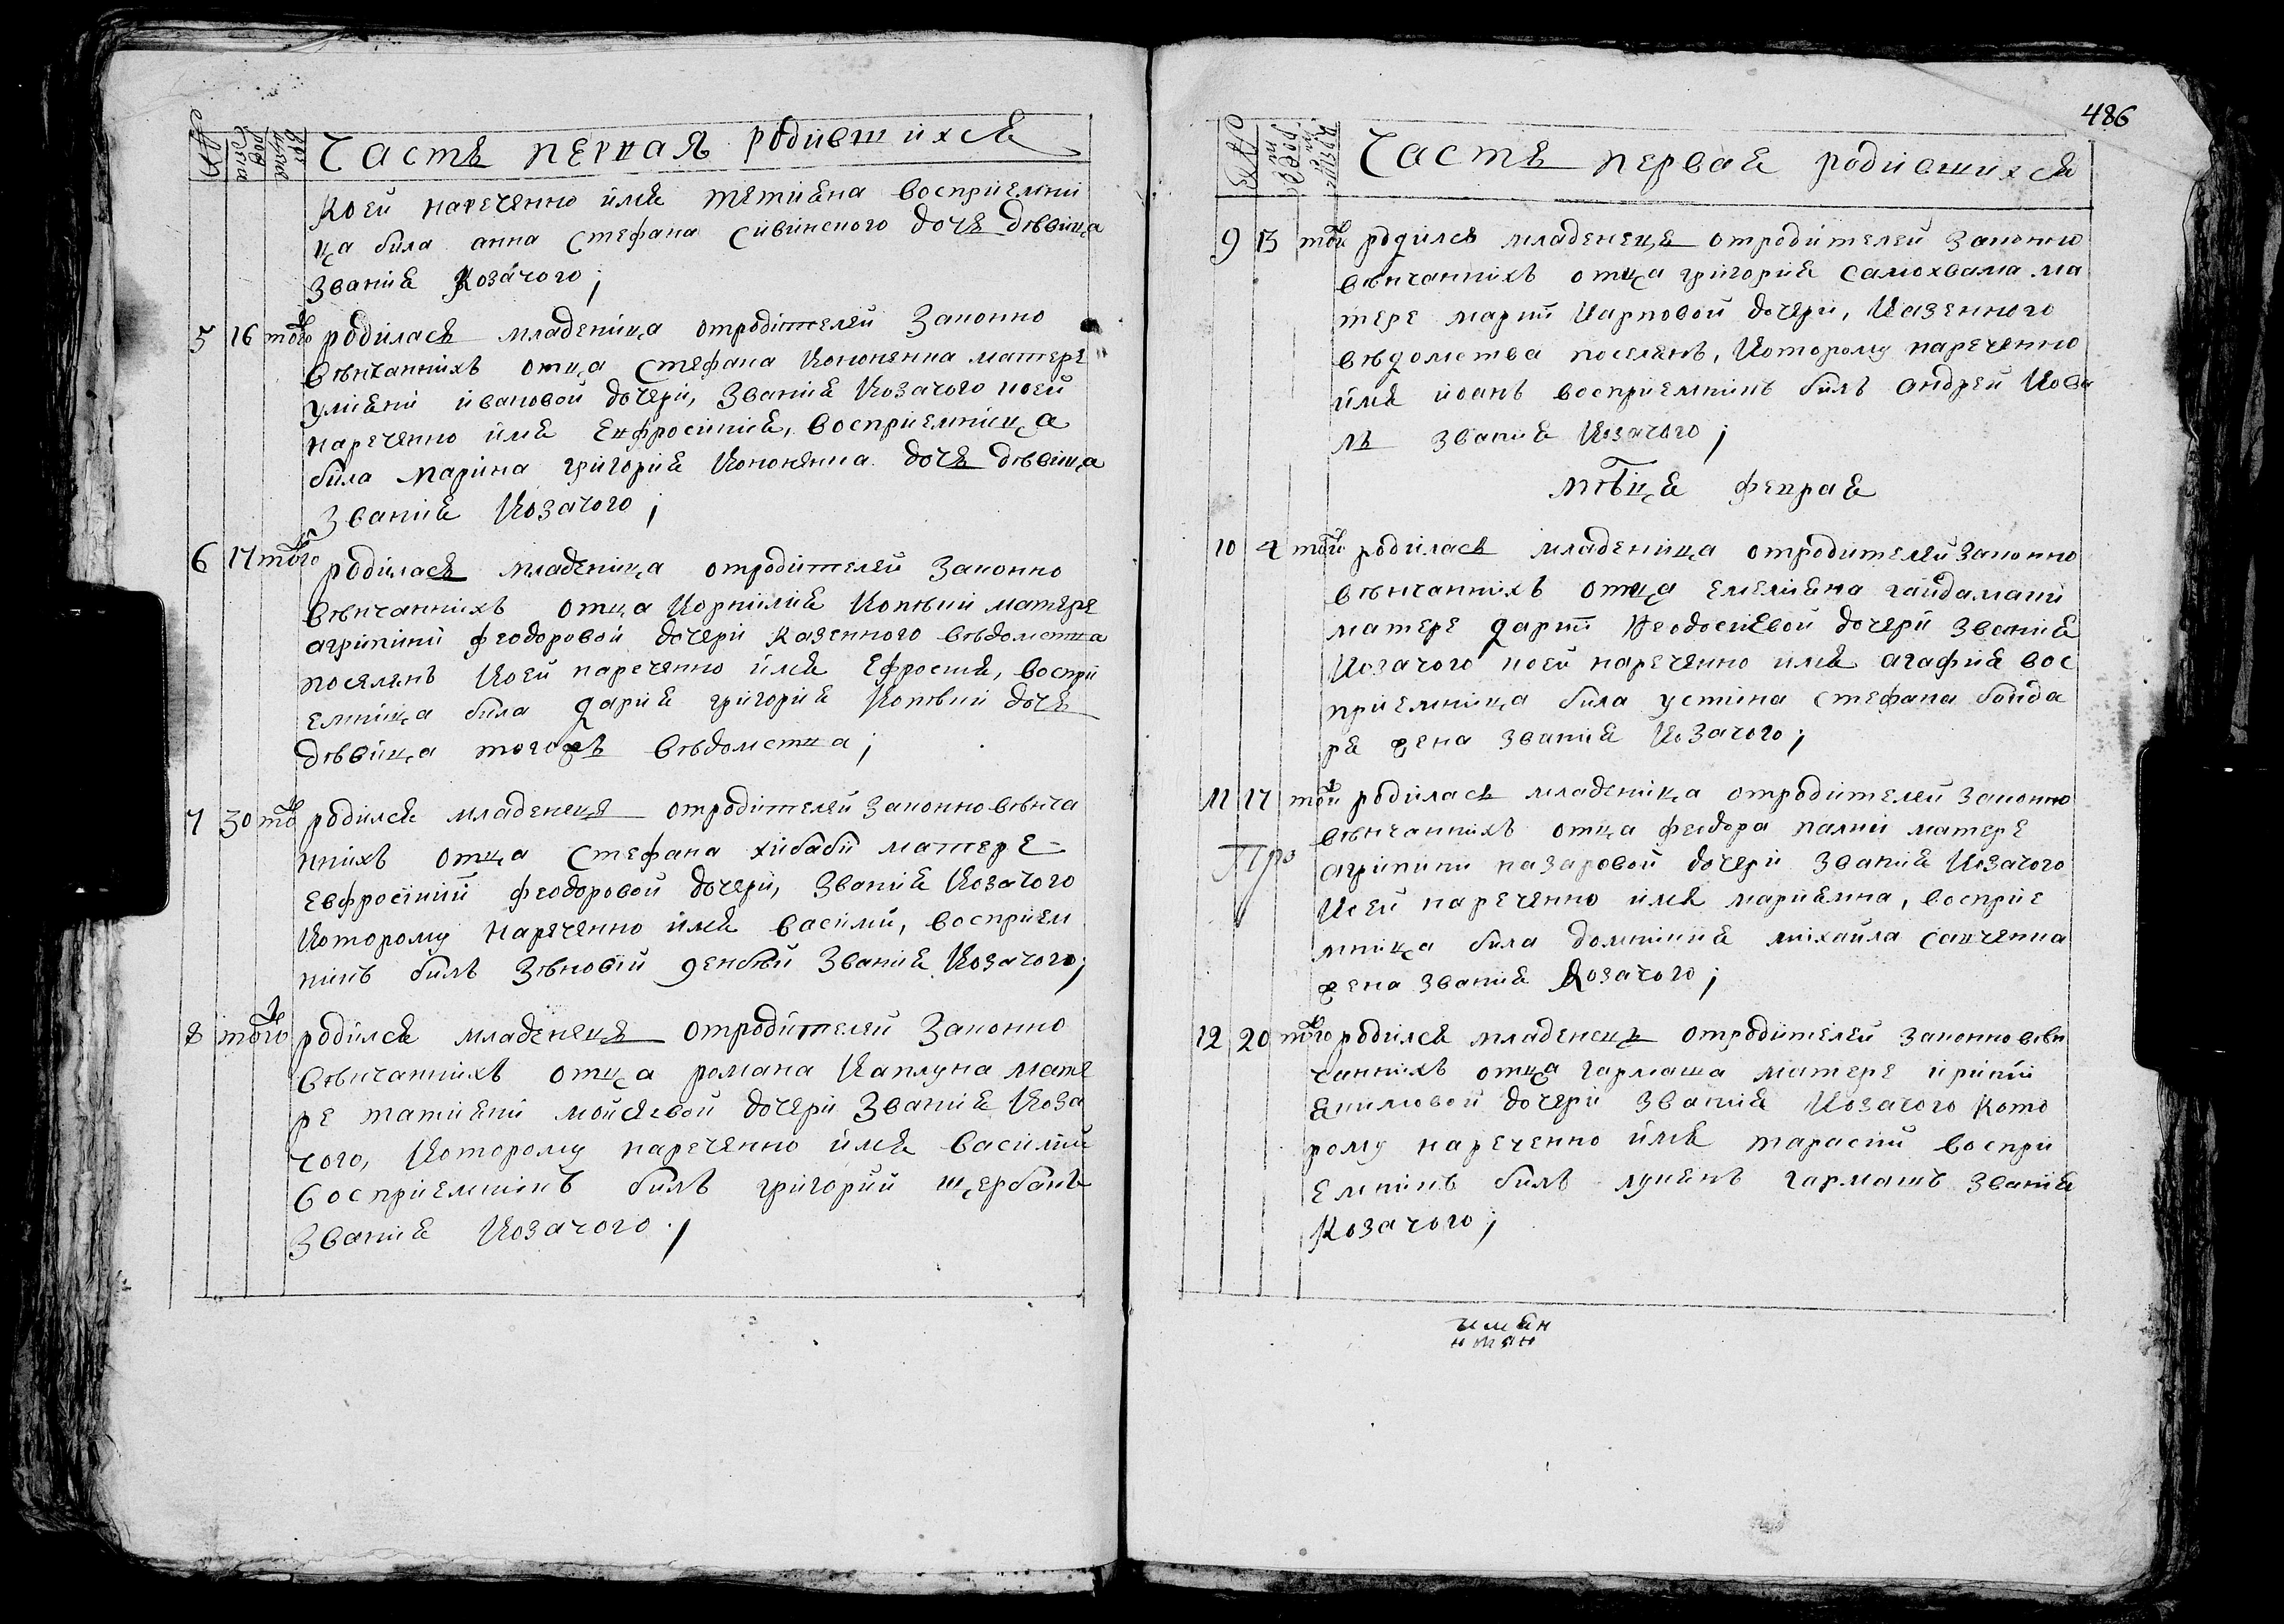 Часть первая родившихся
коей нареченно имя тетияна восприемни
ца била анна стефана сивинского дочь дѣвица
звания козачого;
5 16 того родилась младеница отродителей законно
вѣнчаннихъ отца стефана кононенка матере
улияни ивановой дочери, звания козачого коей
нареченно имя евфросиния, восприемница
била марина григория кононенка дочь дѣвица
звания козачого;
6 17 того родилась младеница отродителей законно
вѣнчаннихъ отца корнилия матере
агрипини феодоровой дочери казенного вѣдомства
поселянъ коей нареченно имя ефросиня, воспри
емница била дария григория дочь
дѣвица тогожъ вѣдомства;
7 30 того родился младенецъ отродителей законно вѣнча
ннихъ отца стефана хибаби матере
евфросинии феодоровой дочери, звания козачого
которому нареченно имя василий, восприем
никъ билъ зѣновий звания козачого;
8 того родился младенецъ отродителей законно
вѣнчаннихъ отца романа каплуна мате
ре татияни мойсеевой дочери звания коза
чого, которому нареченно имя василий
восприемникъ билъ григорий щербанъ
звания козачого;
486
Часть первая родившихся
9 13 той родился младенецъ отродителей законно
вѣнчаннихъ отца григория самохвала ма
тере марии карповой дочери, казенного
вѣдомства поселянъ, которому нареченно
имя иоанъ восприемникъ билъ андрей кова
ль звания козачого;
мѣсця февраля
10 4 той родилась младеница отродителей законно
вѣнчаннихъ отца емелияна гайдамаки
матере дарии феодосиевой дочери звания
козачого коей нареченно имя агафия вос
приемница била устина стефана бойда
ря жена звания козачого;
11 17 той родилась младеница отродителей законно
вѣнчаннихъ отца феодора палий матере
агрипини назаровой дочери звания козачого
коей нареченно имя мариямна, восприе
мница била домникия михаила савченка
жена звания козачого;
12 20 того родился младенецъ отродителей законно вѣн
чаннихъ отца гармаша матере ирини
якимовой дочери звания козачого кото
рому нареченно имя тарасий воспри
емникъ билъ лукянъ гармашъ звания
козачого;